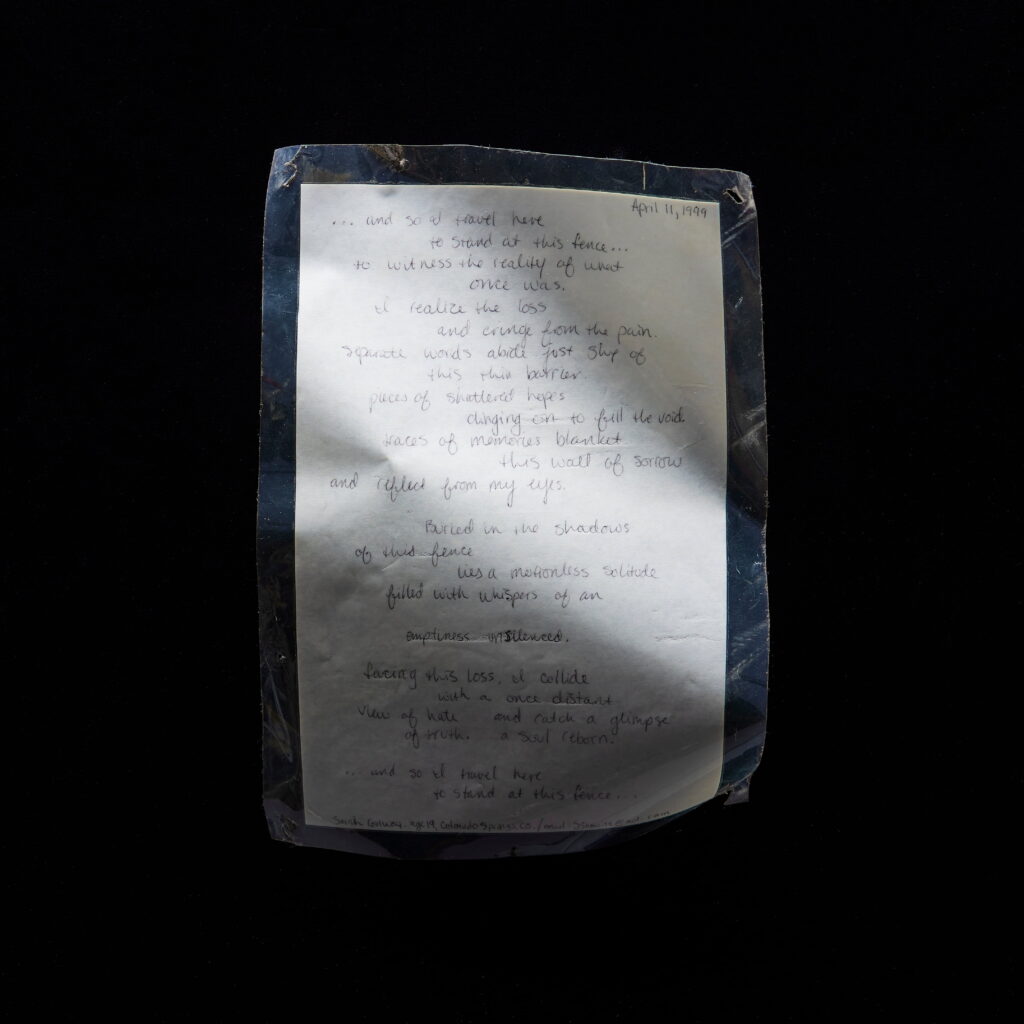 April 11, 1999
... and so I travel here
to stand at this fence...
to witness the reality of what
once was.
I realize the loss
and cringe from the pain.
separate words abide just shy of
this thin barrier.
pieces of shattered hopes
clinging to fill the void.
traces of memories blanket
this wall of sorrow
and reflect from my eyes.
Buried in the shadows
of this fence
lies a motionless solitude
filled with whispers of an
emptiness silenced.
facing this loss, I collide
with a once distant
view of hate and catch a glimpse
of truth. a soul reborn.
... and so I travel here
to stand at this fence...
Sarah age 19, Colorado Springs, CO. / email